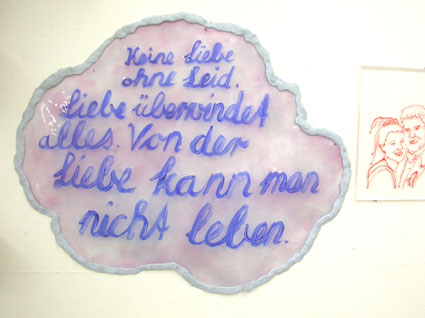 Keine Liebe
ohne Leid.
Liebe überwindet
alles. Von der
Liebe kann man
nicht leben.